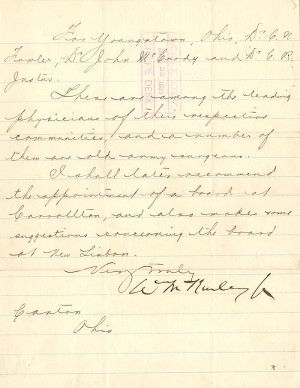 For Youngstown, Ohio, Dr. C. N.
Fowler, Dr. John McCurdy and Dr. C. R.
Justis.
These are among the leading
physicians of their respective
communities, and a number of
them are old army surgeons.
I shall later recommend
the appointment of a board at
Carrollton, and also make some
suggestions concerning the board
at New Lisbon.
Very Truly
W McKinley Jr
Canton
Ohio